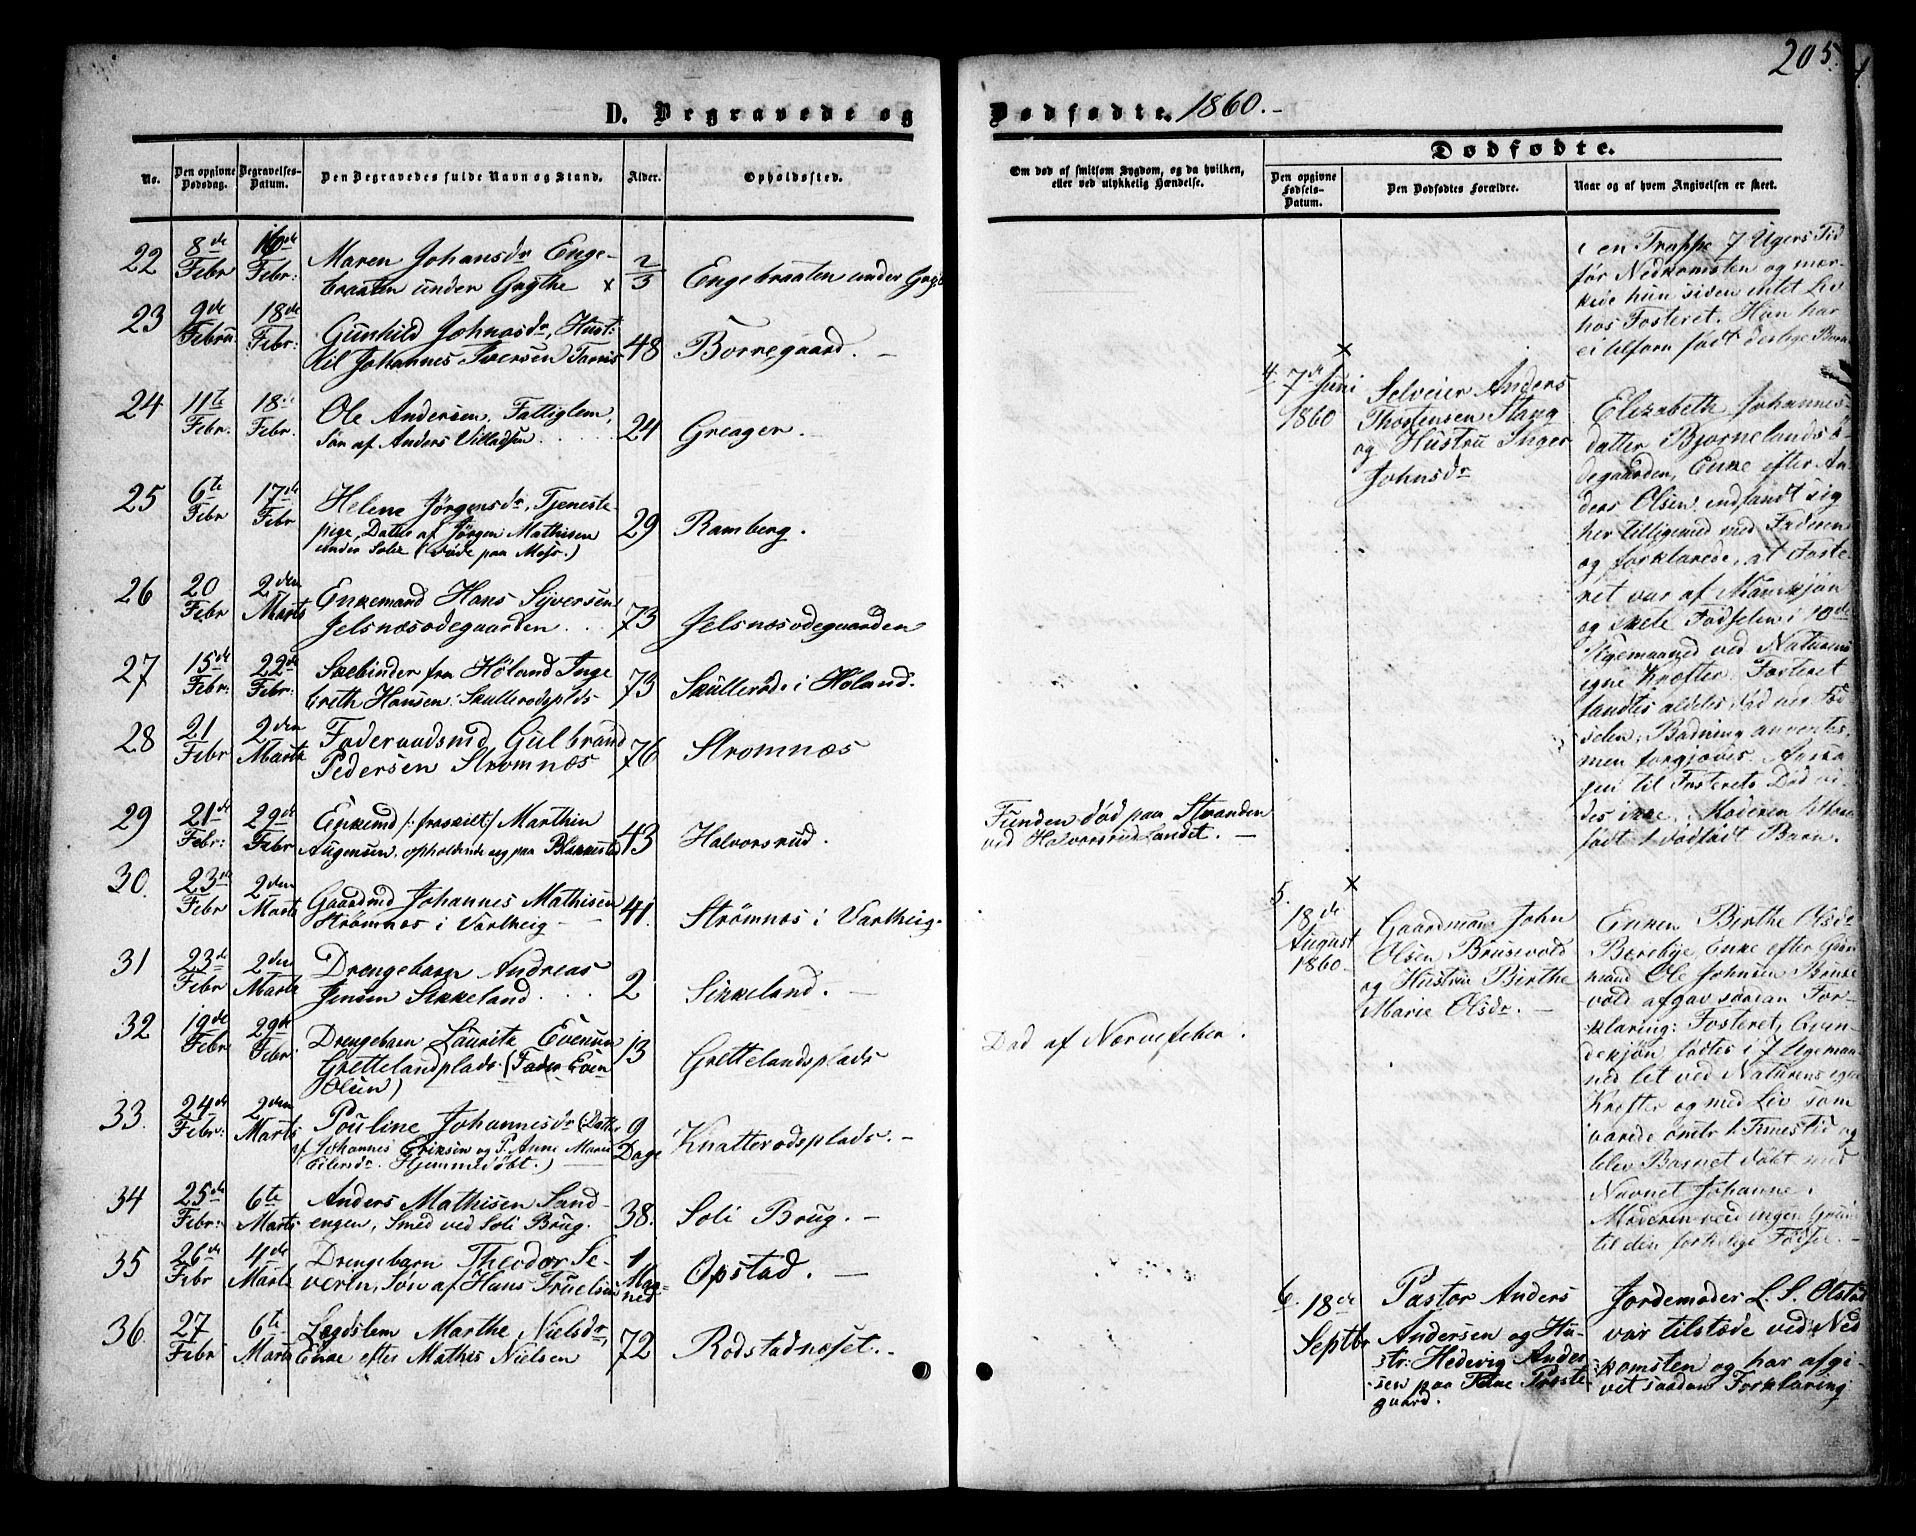 205.
D. Begravede og
Dødfødte. 1860.-
No.
Den opgivne Dødsdag.
Begravelses-Datum.
Den Begravedes fulde Navn og Stand.
Alder.
Opholdssted.
Om død af smitsom Sygdom, og da hvilken,
eller ved ulykkelig Hændelse.
Dødfødte.
Den opgivne Fødsels-Datum.
Den Dødfødtes Forældre.
Naar og af hvem Angivelsen er skeet.
22 8de Febr 16de Febr: Maren Johansdr Enge-
braaten under Grythe x 2/3 Engebraaten under
23 9de Febru: 18de Febr: Gunhild Johnsdr, Hust:
til Johannes Iversen 48 Borregaard. -
24 11te Febr. 18de Febr. Ole Andersen, Fattiglem,
Søn af Anders Villadsen . . . 24 Greager. -
25 6te Febr 17de Febr Helene Jørgensdr, Tjeneste-
pige, Datter af Jørgen Mathisen
under Solie (døde paa Moss.) 29 Ramberg.
26 20 Febr 2den Marts Enkemand Hans Syversen
Jelsnæsødegaarden . . . 73 Jelsnæsødegaarden
27 15de Febr: 22de Febr: fra Høland Inge
breth Hansen Skullerødsplds 73 Skullerød i Høland.
28 21 Febr 2den Marts Føderaadsmd Gulbrand
Pedersen Strømnæs 76 Strømnæs
29 21de Febr: 29de Febr Enkemd /: fraskilt :/ Marthin
Augensen, opholdende sig paa 43 Halvorsrud.
Funden død paa Stranden
ved Halvorsrudlandet. -
30. 23de Febr 2den Marts Gaardmd Johannes Mathisen
Strømnæs i Vartheig - 41. Strømnæs i Vartheig.
31 23de Febr 2den Marts Drengebarn Andreas
Jensen Sikkeland . . . 2 Sikkeland. -
32 19de Febr 29de Febr: Drengebarn Lauritz Evensen
Grettelandsplads. (Fader Even
Olsen) 13 Grettelandsplads
Død af Nervefeber.
33. 24de Febr: 2den Marts Pouline Johannesdr (Datter
af Johannes Eriksen og P. Anne Marie
Eilersdr. Hjemmedøbt.) 9 Dage Knatterødsplads. -
34 25de Febr: 6te Marts Anders Mathisen Sand-
engen, Smed ved Soli Brug. 38. Soli Brug. -
35 26de Febr 4de Marts Drengebarn Theodor Se-
verin, Søn af Hans Truelsen 1 Maaned Opstad. -
36. 27 Febr 6te Marts Lægdslem Marthe Nielsdr,
Enke efter Mathis Nielsen 72 Rødstadnæset. -
i en Trappe 7 Ugers Tid
før Nedkomsten og mær-
kede hun siden intet Liv
hos Fosteret. Hun har
ei tilforn født deslige Børn
x
4. 7de Juni 1860
Selveier Anders
Thostensen Stang
og Hustru Inger
Johnsdr
Elizabeth Johannes-
datter Bjørnelandsø-
degaarden, Enke efter An-
ders Olsen, indfandt sig
her tilligemed med Faderen
og forklarede, at Foste-
ret var af Mandkjøn
og skete Fødselen i 10de
Ugemaaned ved Naturens
egne Kræfter. Fosteret
fandtes aldeles død ved Fød-
selen; Badning anvendtes,
men forgjæves. Aarsa-
gen til Fosterets Død vi-
des ikke. Moderen har
født 1 dødfødt Barn.
x
5. 18de August 1860-
Gaardmand John
Olsen Brusevold
og Hustru Birthe
Marie Olsdr. -
Enken Birthe Olsdr
Berebye, Enke efter Gaar
mand Ole Johnsen Bruse
vold afgav saadan For-
klaring: Fosteret, Qvin-
dekjøn fødtes i 7 Ugemaa-
ned let ved Naturens egne
Kræfter og med Liv som
varede omtr 1 Times Tid og
blev Barnet døbt med
Navnet Johanne.
Moderen veed ingen Grund
til den fortidlige Fødsel. -
6. 18de Septbr
Pastor Anders
Andersen og Hu-
str: Hedevig Ander-
sen paa Tune Præste-
gaard.
Jordemoder L. S. Olstad
var tilstæde ved Ned
komsten og har afgi-
vet saadan Forklaring